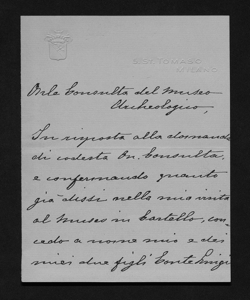 6, S.T TOMASO
MILANO
On.le Consulta del Museo
Archeologico,
In risposta alla domanda
di codesta On. Consulta,
e confermando quanto
già dissi nella mia visita
al Museo in Castello, con-
cedo a nome mio e dei
miei due figli Conte Luigi